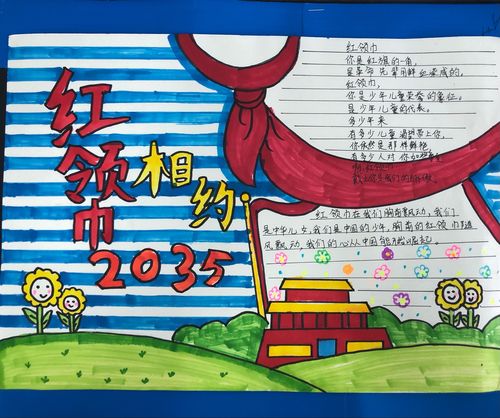 红领巾
相约
2035
红领巾
你是红旗的一角，
是革命先辈用鲜血染成的。
红领巾，
你是少年儿童荣誉的象征。
是少年儿童的代表。
多少年来
有多少儿童渴望带上你，
你依然是那样鲜艳
有多少人对你
红领巾在我们胸前飘动，我们
是中华儿女，我们是中国的少年，胸前的红领巾随
风飘动，我们的心从中国